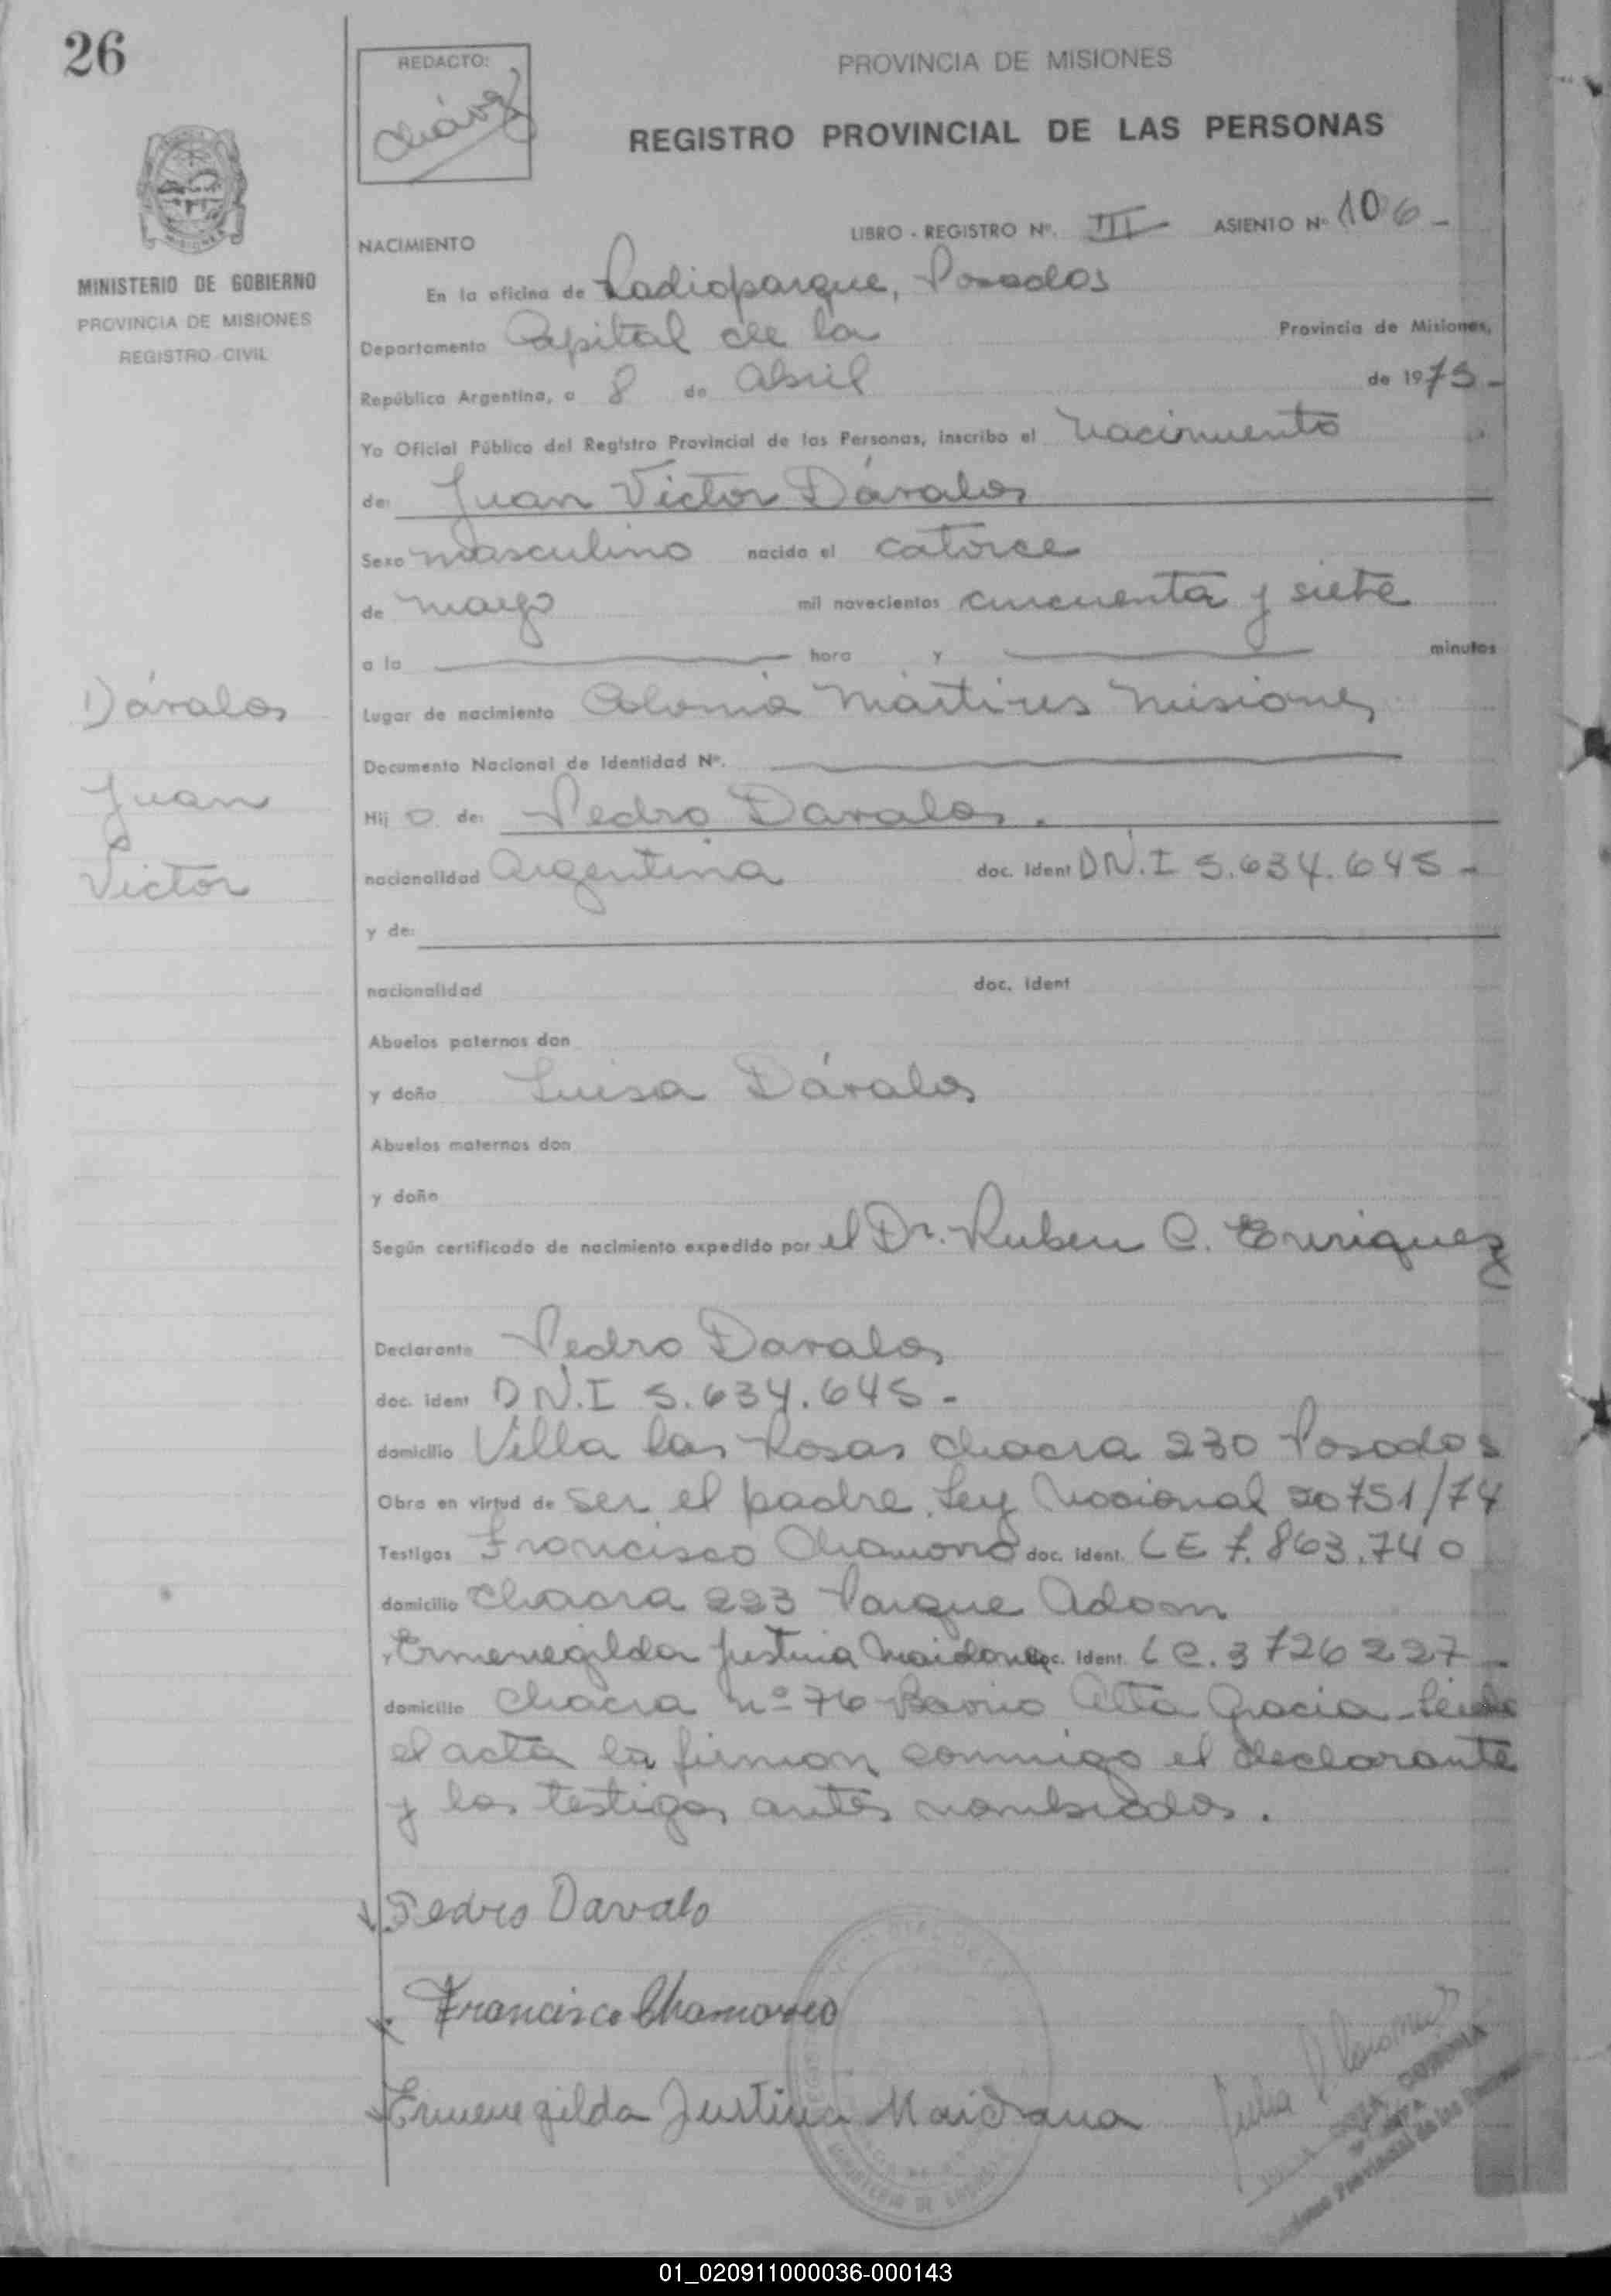 26
REDACTO:
PROVINCIA DE MISIONES
REGISTRO PROVINCIAL DE LAS PERSONAS
LIBRO - REGISTRO Nº. III ASIENTO Nº 106 -
NACIMIENTO
MINISTERIO DE GOBIERNO
PROVINCIA DE MISIONES
REGISTRO CIVIL
En la oficina de Radioparque, Posadas
Departamento Capital de la Provincia de Misiones,
República Argentina, a 8 de Abril de 1975 -
Yo Oficial Público del Registro Provincial de las Personas, inscribo el nacimiento
de: Juan Victor Dávalos
Sexo masculino nacido el catorce
de mayo mil novecientos cincuenta y siete
a la hora y minutos
Dávalos
Juan
Victor
Lugar de nacimiento Colonia Mártires Misiones
Documento Nacional de Identidad Nº.
Hij o de: Pedro Davalos.
nacionalidad Argentina doc. ident D.N.I 5.634.645 -
y de:
nacionalidad doc. ident
Abuelos paternos don
y doña Luisa Dávalos
Abuelos maternos don
y doña
Según certificado de nacimiento expedido por el Dr. Ruben C. Enriquez
Declarante Pedro Davalos
doc. ident D.N.I 5.634.645 -
domicilio Villa las Rosas chacra 230 Posadas
Obra en virtud de ser el padre. Ley Nacional 20751/74
Testigos Francisco Chamorro doc. ident. LE 7.863.740
domicilio Chacra 223 Parque Adam
Ermenegilda Justina Maidana doc. ident. LC. 3726227 -
domicilio Chacra nº 76 Barrio Alta Gracia - Leida
el acta la firman conmigo el declarante
y los testigos antes nombrados.
Pedro Davalo
Francisco Chamorro
Ermenegilda Justina Maidana
01_020911000036-000143